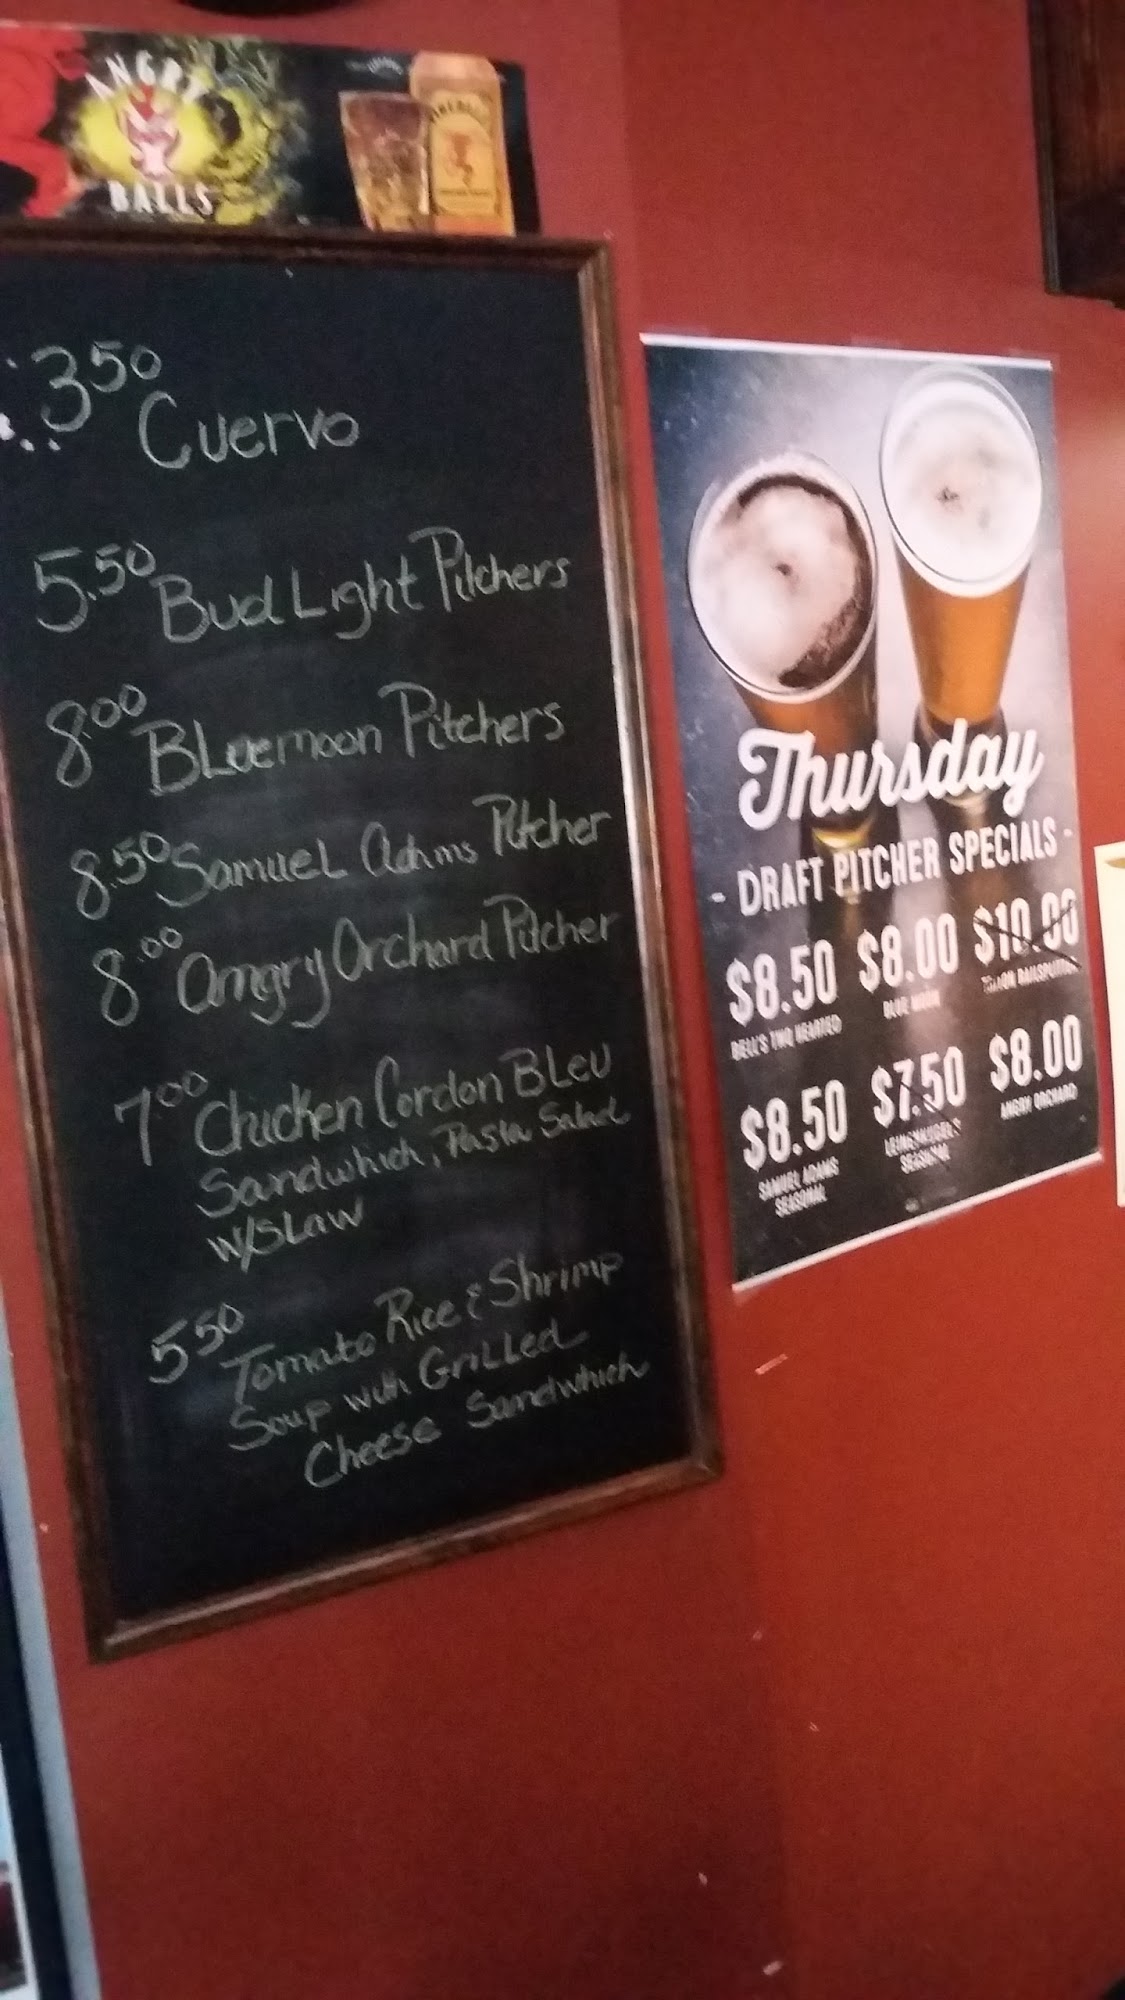 ANGRY
BALLS
FIREBALL
3.50
Cuervo
5.50 Bud Light Pitchers
8.00 BLuemoon Pitchers
8.50 SamueL Adams Pitcher
8.00 Amgry Orchard Pitcher
7.00 Chicken Cordon BLeu
Sandwhich, Pasta Salad
w/SLaw
5.50
Tomato Rice & Shrimp
Soup with GriLLed
Cheese Sandwhich
Thursday
- DRAFT PITCHER SPECIALS -
$8.50 $8.00 $10.00
BELL'S TWO HEARTED BLUE MOON
$8.50 $7.50 $8.00
SAMUEL ADAMS LEINENKUGEL'S ANGRY ORCHARD
SEASONAL SEASONAL